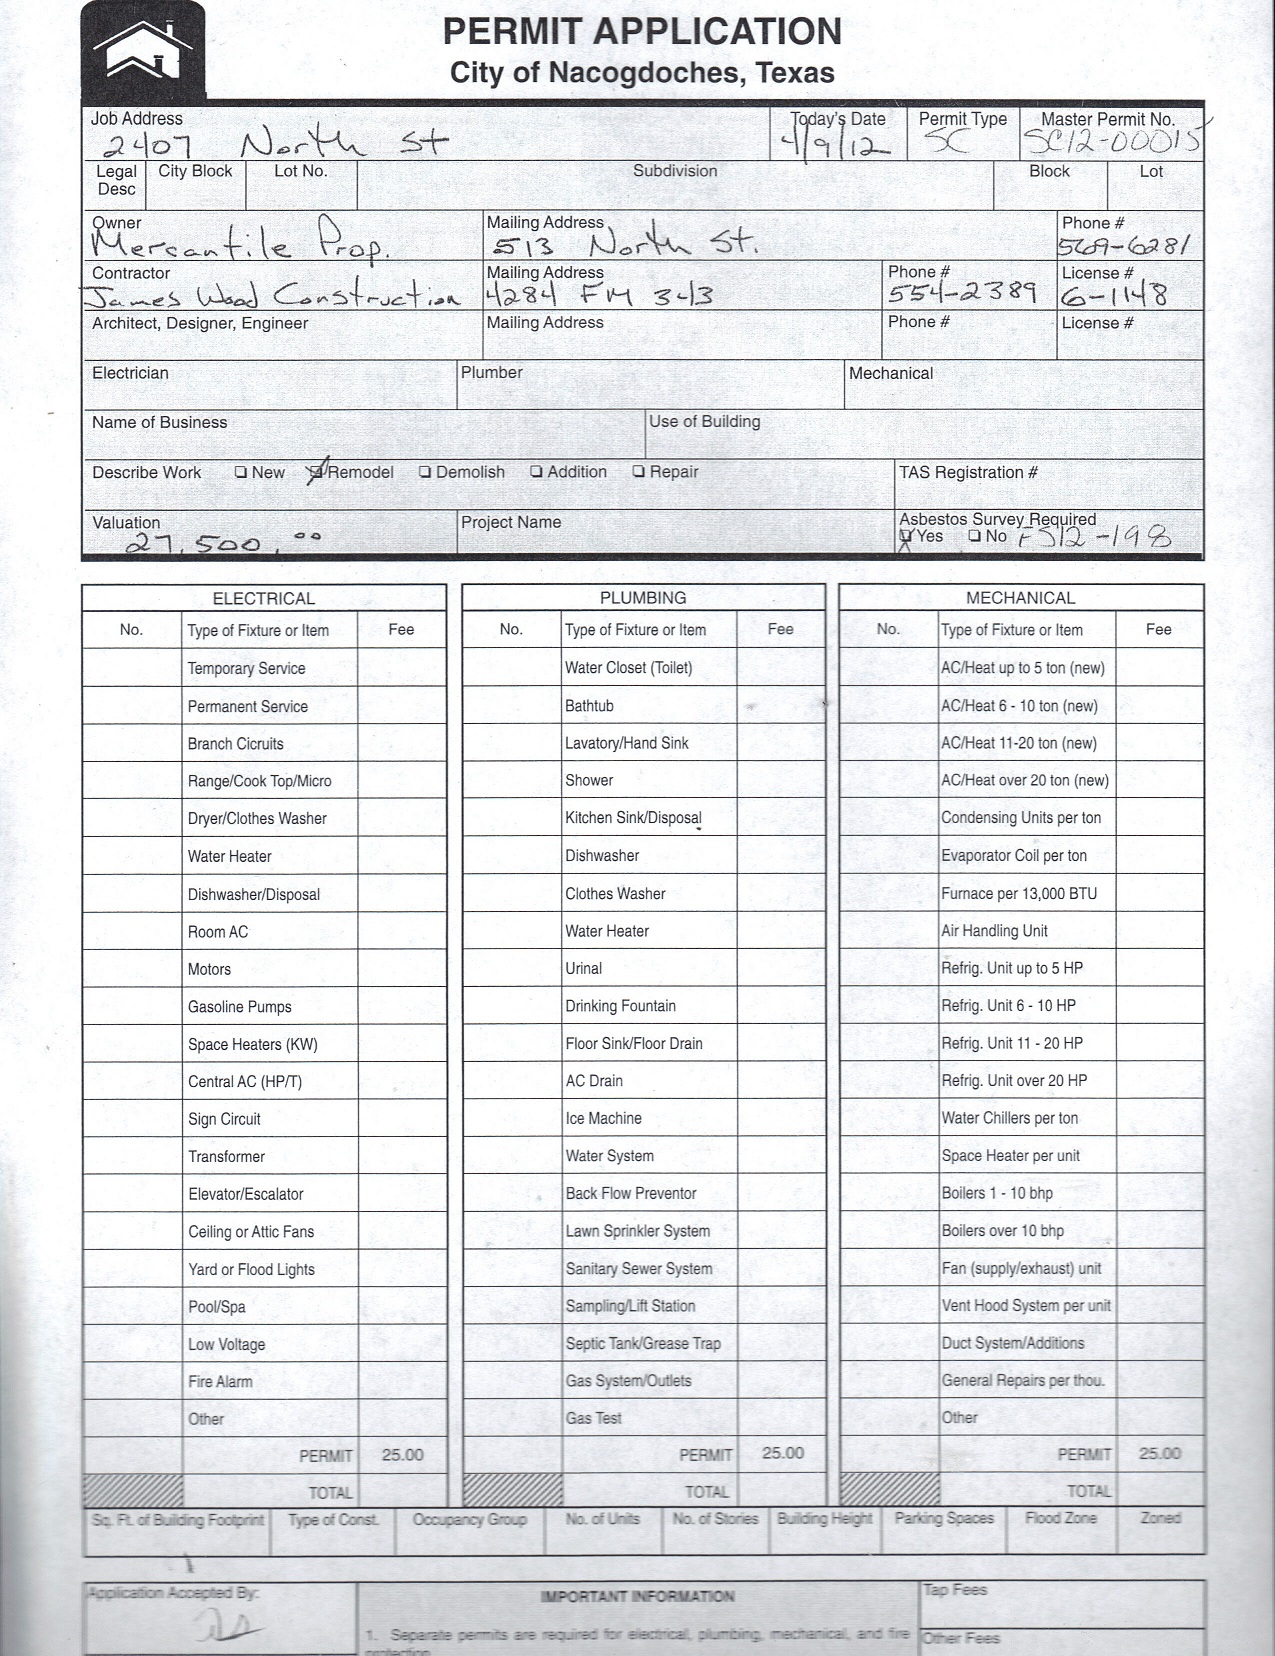 PERMIT APPLICATION
City of Nacogdoches, Texas
Job Address Today's Date Permit Type Master Permit No.
2407 North St 4/9/12 SC SC12-00015
Legal Desc City Block Lot No. Subdivision Block Lot
Owner Mailing Address Phone #
Mercantile Prop. 513 North St. 569-6281
Contractor Mailing Address Phone # License #
James Wood Construction 4284 FM 343 554-2389 6-1148
Architect, Designer, Engineer Mailing Address Phone # License #
Electrician Plumber Mechanical
Name of Business Use of Building
Describe Work New Remodel Demolish Addition Repair TAS Registration #
Valuation Project Name Asbestos Survey Required
27,500.00 Yes No FS12-198
ELECTRICAL PLUMBING MECHANICAL
No. Type of Fixture or Item Fee No. Type of Fixture or Item Fee No. Type of Fixture or Item Fee
Temporary Service Water Closet (Toilet) AC/Heat up to 5 ton (new)
Permanent Service Bathtub AC/Heat 6 - 10 ton (new)
Branch Cicruits Lavatory/Hand Sink AC/Heat 11-20 ton (new)
Range/Cook Top/Micro Shower AC/Heat over 20 ton (new)
Dryer/Clothes Washer Kitchen Sink/Disposal Condensing Units per ton
Water Heater Dishwasher Evaporator Coil per ton
Dishwasher/Disposal Clothes Washer Furnace per 13,000 BTU
Room AC Water Heater Air Handling Unit
Motors Urinal Refrig. Unit up to 5 HP
Gasoline Pumps Drinking Fountain Refrig. Unit 6 - 10 HP
Space Heaters (KW) Floor Sink/Floor Drain Refrig. Unit 11 - 20 HP
Central AC (HP/T) AC Drain Refrig. Unit over 20 HP
Sign Circuit Ice Machine Water Chillers per ton
Transformer Water System Space Heater per unit
Elevator/Escalator Back Flow Preventor Boilers 1 - 10 bhp
Ceiling or Attic Fans Lawn Sprinkler System Boilers over 10 bhp
Yard or Flood Lights Sanitary Sewer System Fan (supply/exhaust) unit
Pool/Spa Sampling/Lift Station Vent Hood System per unit
Low Voltage Septic Tank/Grease Trap Duct System/Additions
Fire Alarm Gas System/Outlets General Repairs per thou.
Other Gas Test Other
PERMIT 25.00 PERMIT 25.00 PERMIT 25.00
TOTAL TOTAL TOTAL
Sq. Ft. of Building Footprint Type of Const. Occupancy Group No. of Units No. of Stories Building Height Parking Spaces Flood Zone Zoned
Application Accepted By: IMPORTANT INFORMATION Tap Fees
1. Separate permits are required for electrical, plumbing, mechanical, and fire Other Fees
protection.